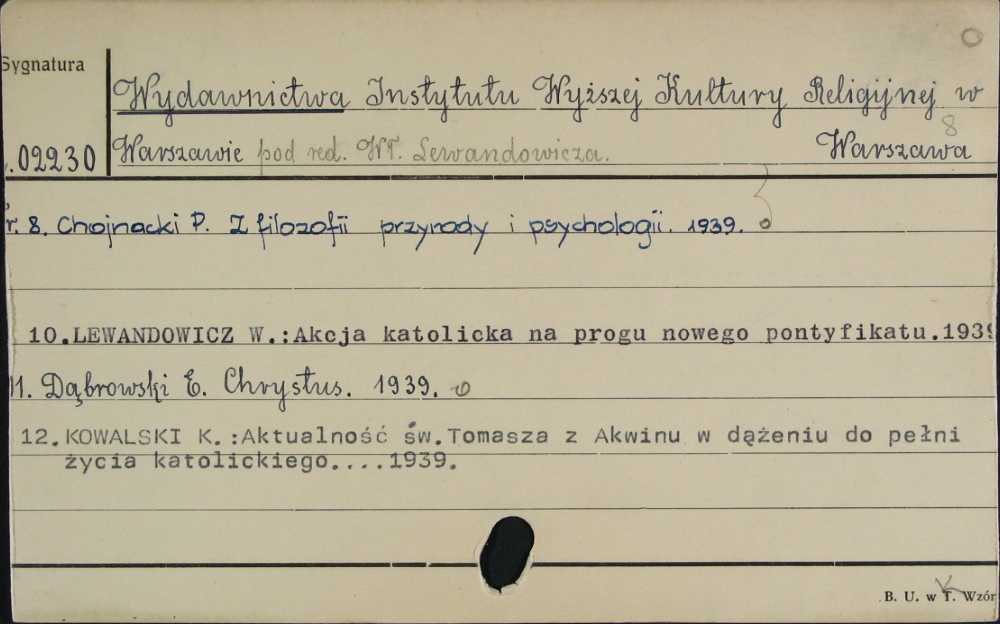 Sygnatura
Wydawnictwa Instytutu Wyższej Kultury Religijnej w
02230 Warszawie pod red. Wł. Lewandowicza. Warszawa 8
r. 8. Chojnacki P. Z filozofii przyrody i psychologii. 1939.
10.LEWANDOWICZ W.:Akcja katolicka na progu nowego pontyfikatu.1939
11. Dąbrowski E. Chrystus. 1939.
12.KOWALSKI K.:Aktualność św.Tomasza z Akwinu w dążeniu do pełni
życia katolickiego....1939.
B. U. w T. Wzór